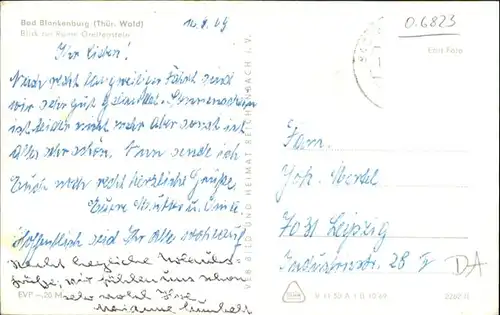 Bad Blankenburg (Thür. Wald)
Blick zur Ruine Greifenstein
0.6823
Echt Foto
Ihr Lieben!
Nach recht langweiliger Fahrt sind
wir sehr gut gelandet. Sonnenschein
ist leider nicht mehr aber sonst ist
alles sehr schön. Nun sende ich
Euch noch recht herzliche Grüße
Eure Mutter u. Omi
Hoffentlich seid Ihr Alle wohlauf
recht herzliche Urlaubs-
grüße, wir fühlen uns schon
sehr wohl Ihre
Marianne
EVP -,20 M
VEB BILD UND HEIMAT REICHENBACH i. V.
Fam.
Joh.
7031 Leipzig
Industriestr. 28
DA
V 11 50 A 1 B 10/69